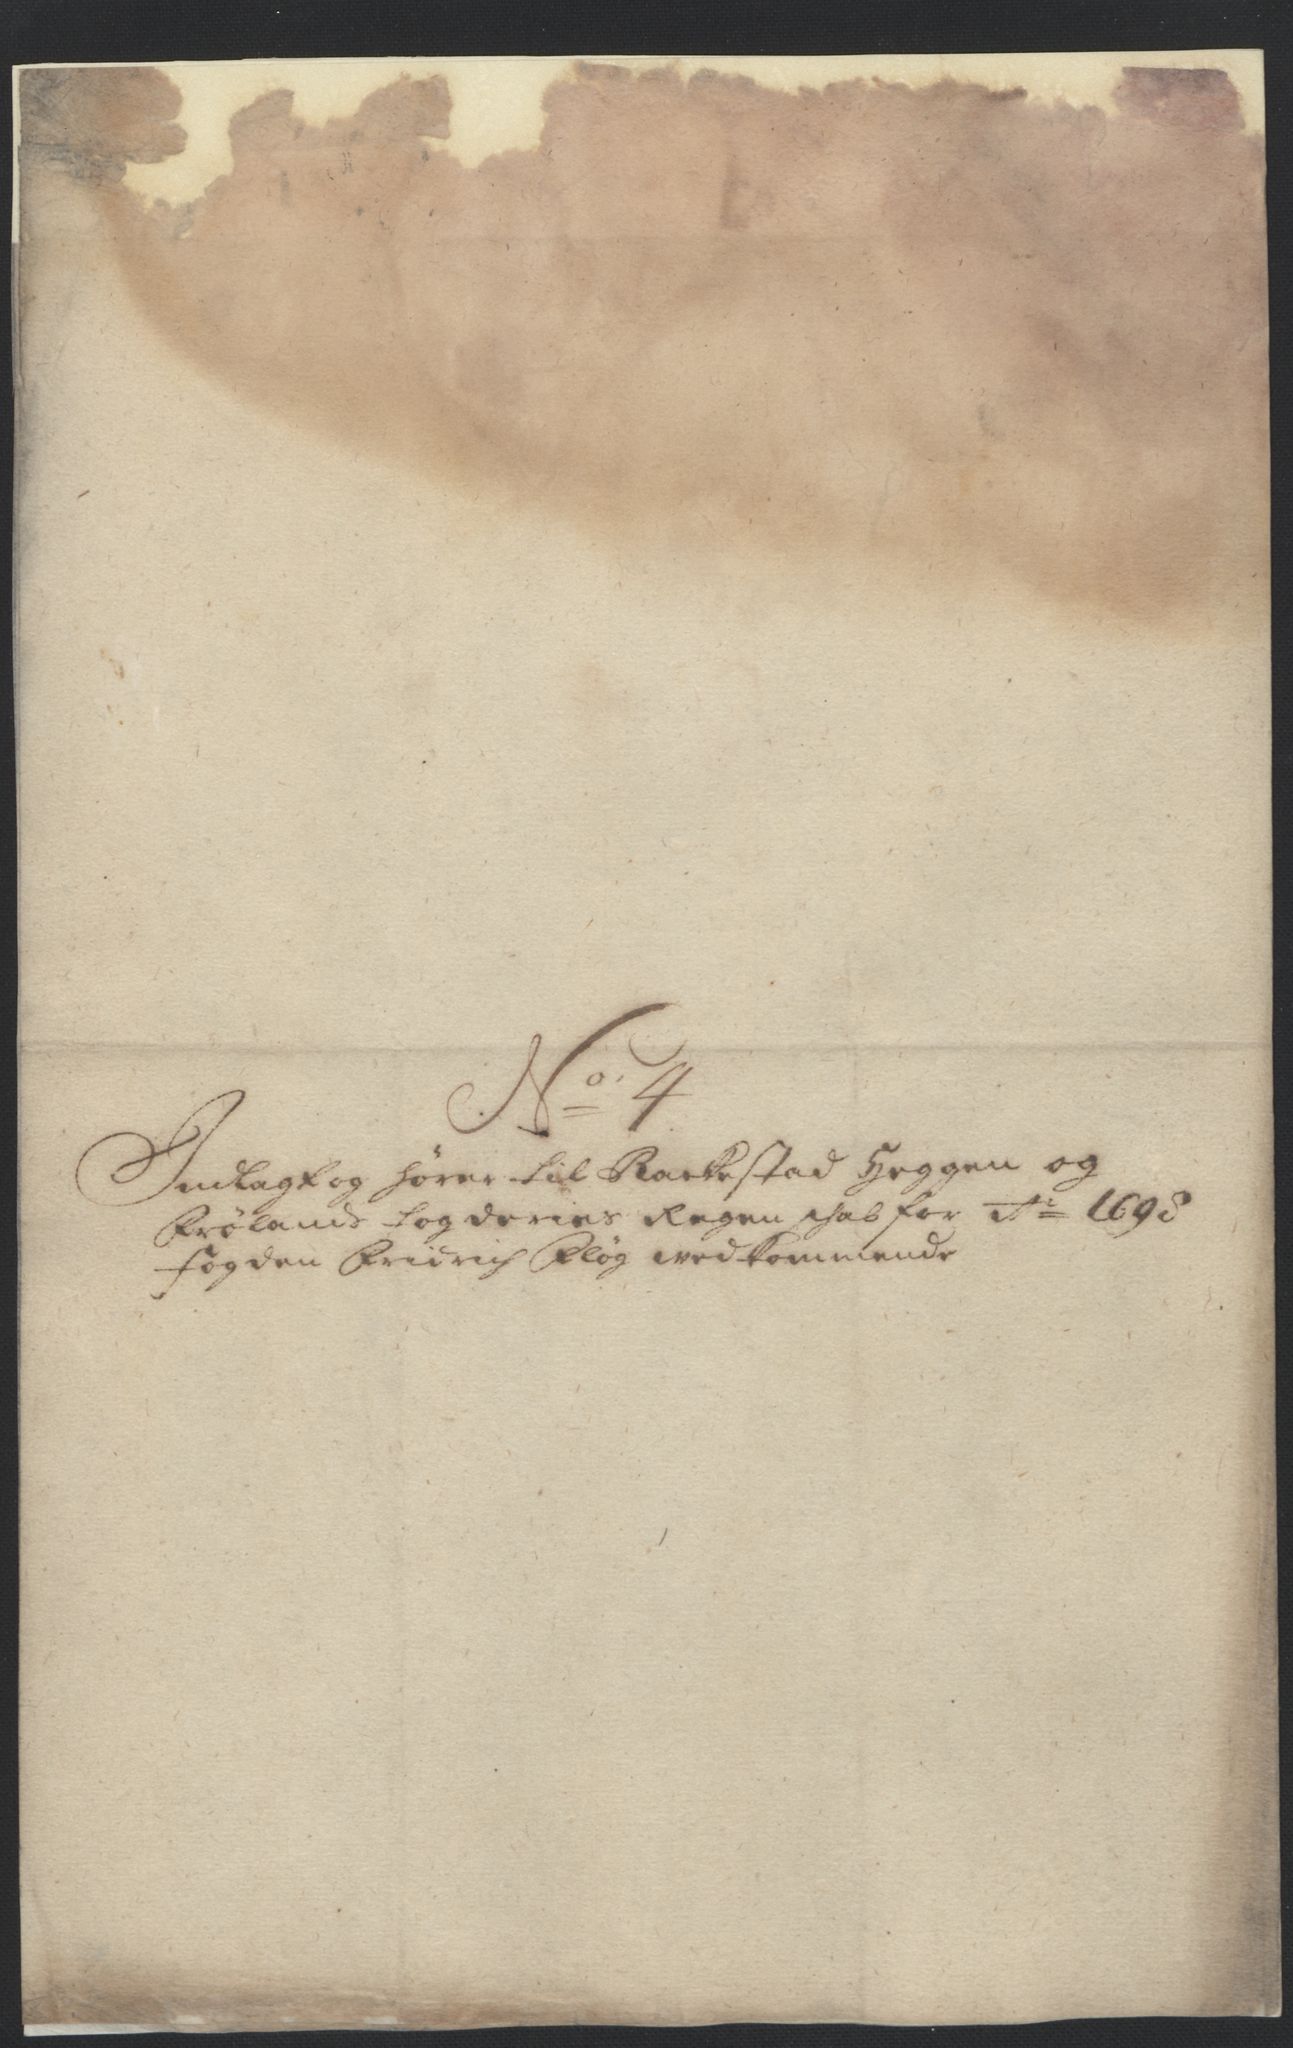 No. 4
Indlagt og hörer til Rackestad Heggen og
Frölands fogderies Regenschab for Ao 1698
fogden Fridrich Plög vedkommende